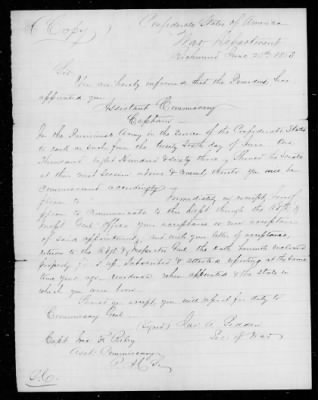 (Copy) Confederate States of America
War Department
Richmond June 26th 1863
Sir
You are hereby informed that the President has
appointed you
Assistant Commissary
Captain
In the Provisional Army in the service of the Confederate States
to rank as such from the twenty sixth day of June One
thousand eight hundred & sixty three. Should the Senate
at their next session advise & consent thereto you will be
commissioned accordingly
Immediately on receipt hereof
please to communicate to this Dept through the Adjt &
Inspt Genl Office your acceptance or non acceptance
of said appointment, and with your letter of acceptance,
return to the Adjt & Inspector Genl the oath herewith enclosed
properly filled up, subscribed & attested reporting at the same
time your age, residence when appointed & the State in
which you were born
Should you accept, you will report for duty to
Commissary Genl
Signed Jas. A. Seddon
Secy of War
Capt Riley
Asst Commissary
P.A.C.S.